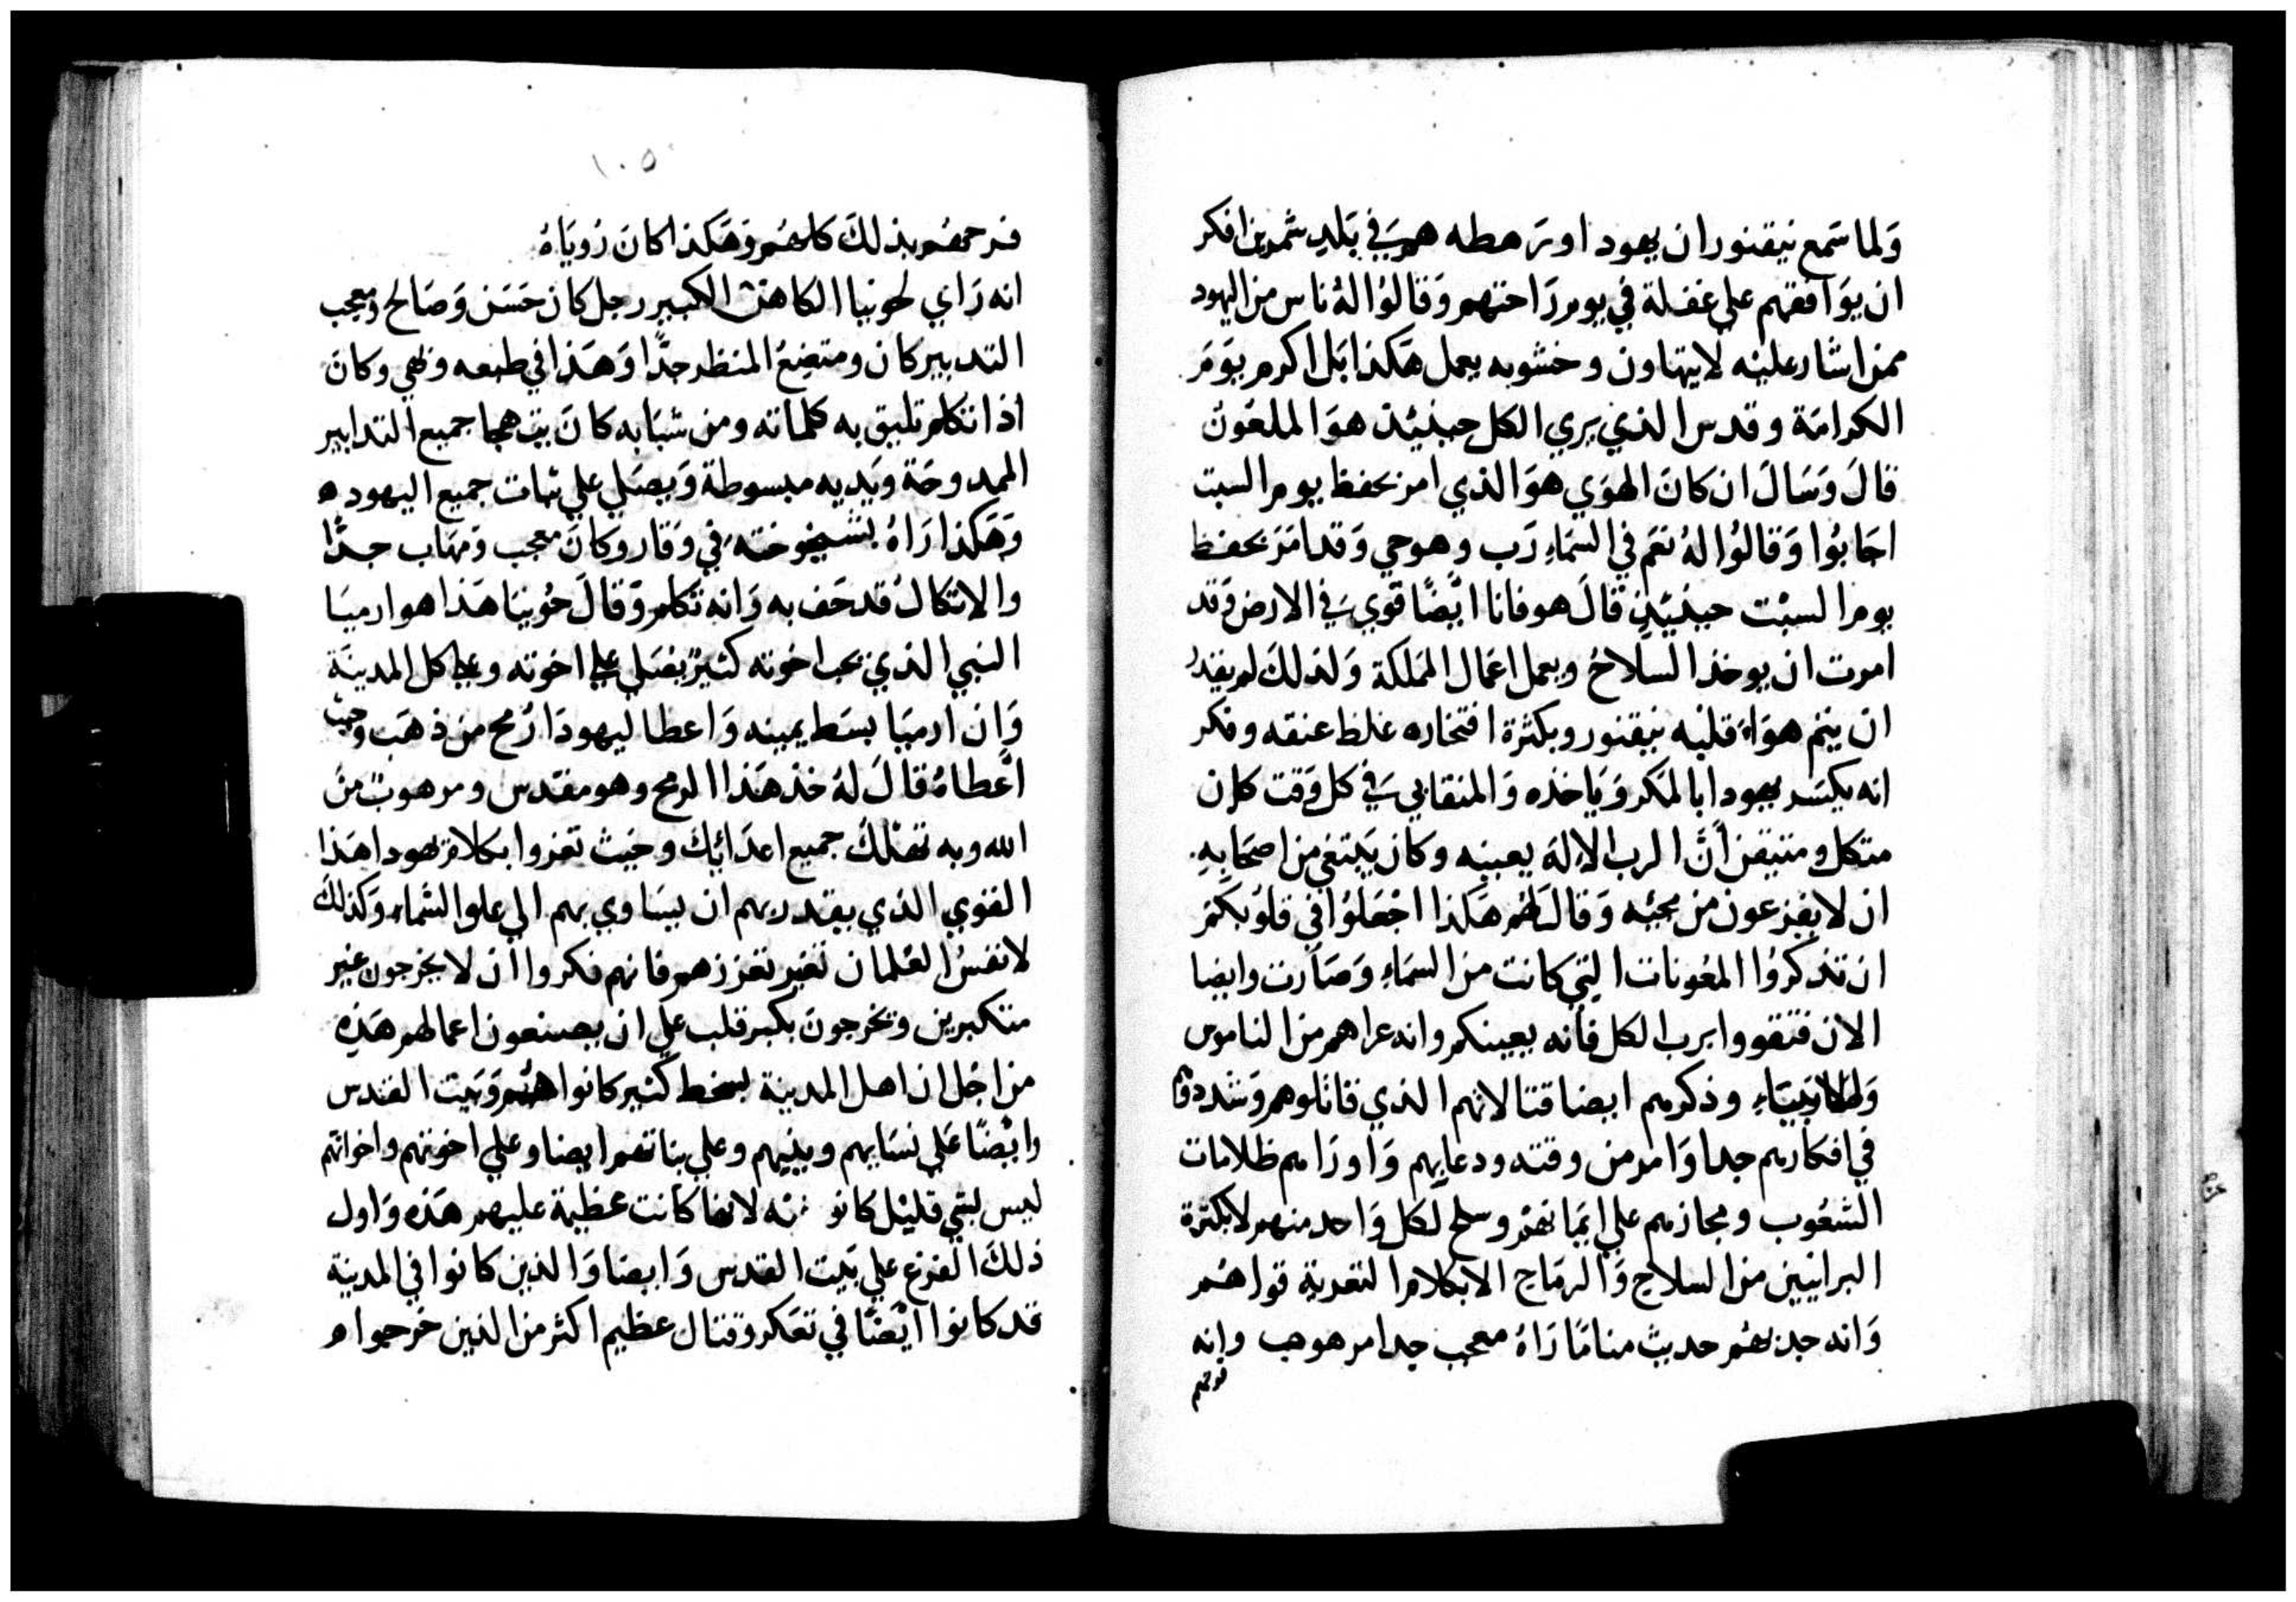 وَلما سَمع نيقنور ان يهودا وترهطه هم في بَلدِ شمرين افكر
ان يوَافقهم علي غفلة في يوم رَاحتهم وَقالوُا لهُ ناس من اليهود
ممن اشار عليْه لا يتهاون وخشوبه يعمل هَكذا بَل اكرم يوَمَ
الكرامَة وقدس الذي يري الكل حينيُذ هوَ الملعَون
قالَ وَسَالَ ان كانَ الهوَي هوَ الذي امر بحفظ يوم السبت
اجَابوُا وَقالوُا لهُ نعَم في السمَاءِ رَب وهو حي وَقد امَرَ بحفظ
يوم السبْت حينيُذٍ قالَ هو فانا ايًضًا قوي في الارض وَقد
امرت ان يوخذ السلاحُ ويعمل اعمَال المَلكة وَلذلكَ لم يقدُ
ان يتم هوَاءَ قلبْه نيقنور وبكثرة افتخاره غلظ عنقه وفكر
انه يكسَر يهودا بالمَكر وَيَاخذه وَالمتقابي في كل وَقت كان
متكل ومتيقن أنَّ الرب الإلهَ يعينِه وكان يَبتغي من اصحَابهِ
ان لا يفزعون من مجيْه وَقالَ لهُم هَكذا اجْعَلوُا في قلوُبكمَ
ان تذكروُا المعُونات التِي كانت من السمَاءِ وَصَارت وايضا
الان فتقووا برب الكل فأنه يعينكم وانه عزاهم من الناموس
وَالانبيَاءِ وذكرهم ايضا قتالاتهم الذي قاتلوهم وَشددهم
في افكارهم جدا وَامرهم وقته ودعايهم وَاورَاهم ظلامات
الشعُوب ومجازهم علي ايمَانهمْ وسلح لكل وَاحد منهم لا بكثرة
البرانيين من السلاح وَالرمَاح الا بكلام التعزية قواهُم
وَانه حدثهُم حديث منامًا رَاهُ معجب جدا مرهوب وانه
فرحهم
١٠٥
فرحهُم بذلكَ كلهُم وَهَكذا كانَ رُويَاهُ
انه رَاي لحونيا الكاهن الكبير رجل كان حَسَن وَصَالح ومعجب
التدبير كان ومتضِعُ المنظر جدًّا وَهَذا في طبعه ونقي وكانَ
اذا تكلم تليق به كلماته ومن شبَابه كانَ يتهجا جميع التدابير
الممدوحَة وَيَديه مبسوطة وَيصَلي علي ثبات جميع اليهود ه
وَهَكذا رَاهُ بشيخوختهِ في وَقار وكانَ معجب ومَهاب جدًّا
والاتكالُ قد حَف به وَانه تكلم وَقالَ حُونيَا هَذا هو ارميَا
النبي الذي يحب اخوته كثيرً يصَلي علي اخوته وعلي كل المدينَة
وَان ارميَا بسَط يمينه وَاعطا ليهودَا رُمح من ذهَب وحيث
اعْطاهُ قالَ لهُ خذ هَذا الرمح وهو مقدس ومرهوبٌ من
الله وبه تهْلكَ جميع اعدَايْك وحَيث تعزوا بكلام يهودا هَذا
القوي الذي يقدر بهم ان يسَاوي بهم الي علو السَّماء وَكذلكَ
لانفسُ الغلمان تغير تعززهم فانهم فكروا ان لا يخرجون غير
متكبرين ويخرجونَ بكبر قلب علي ان يصنعون اعمالهم هَذهِ
من اجْل ان اهل المدينة بسخط كثير كانوا همْ وَبَيت القدس
وايْضًا عَلي نسَايهم وبنيهم وعلي بناتهم ايضا وعلي اخوتهم واخواتهم
ليس بشي قليْل كانو لانها كانت عظيمة عليهم هَذه وَاول
ذلكَ الفزع علي بَيت القدس وَايضا وَالذين كانوا في المدينة
قد كانوا ايْضًا في تفكر وقتال عظيم اكثر من الذين خرجوا ه